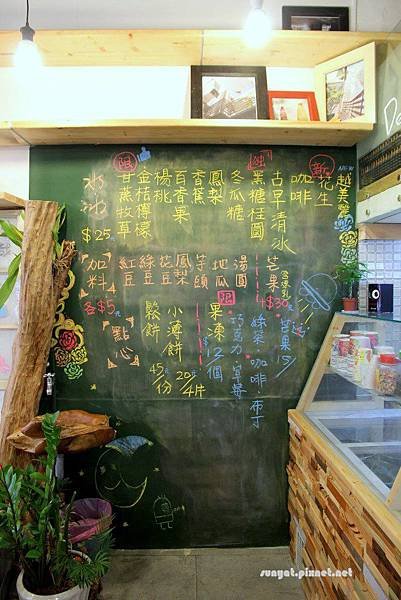 越美麗
NEW
新
花生
咖啡
古早清冰
獨
黑糖桂圓
冬瓜糖
鳳梨
香蕉
百香果
楊桃
金桔檸檬
甘蔗牧草
冰
$25
芒果
$30
湯圓
地瓜
芋頭
鳳梨
花豆
綠豆
紅豆
加料
各$5
綠茶·咖啡·布丁
果凍
12個
小薄餅
20/4片
鬆餅
45/份
點心
sunyat.pixnet.net